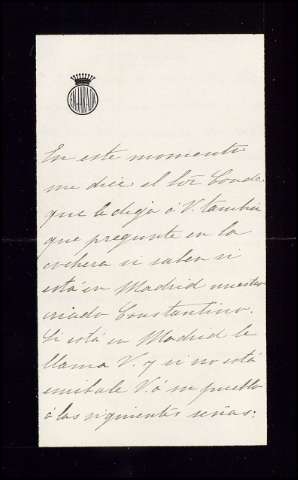 En este momento
me dice el Sor Conde
que le diga á V. tambien
que pregunte en la
cochera si saben si
está en Madrid nuestro
criado Constantino.
Si está en Madrid le
llama V. y si no está
escribale V. á su pueblo
á las siguientes señas: